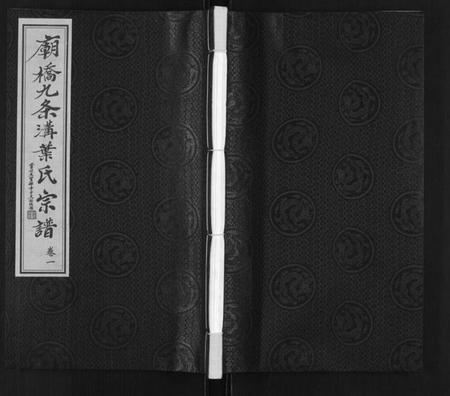 廟橋九条溝葉氏宗譜
卷一